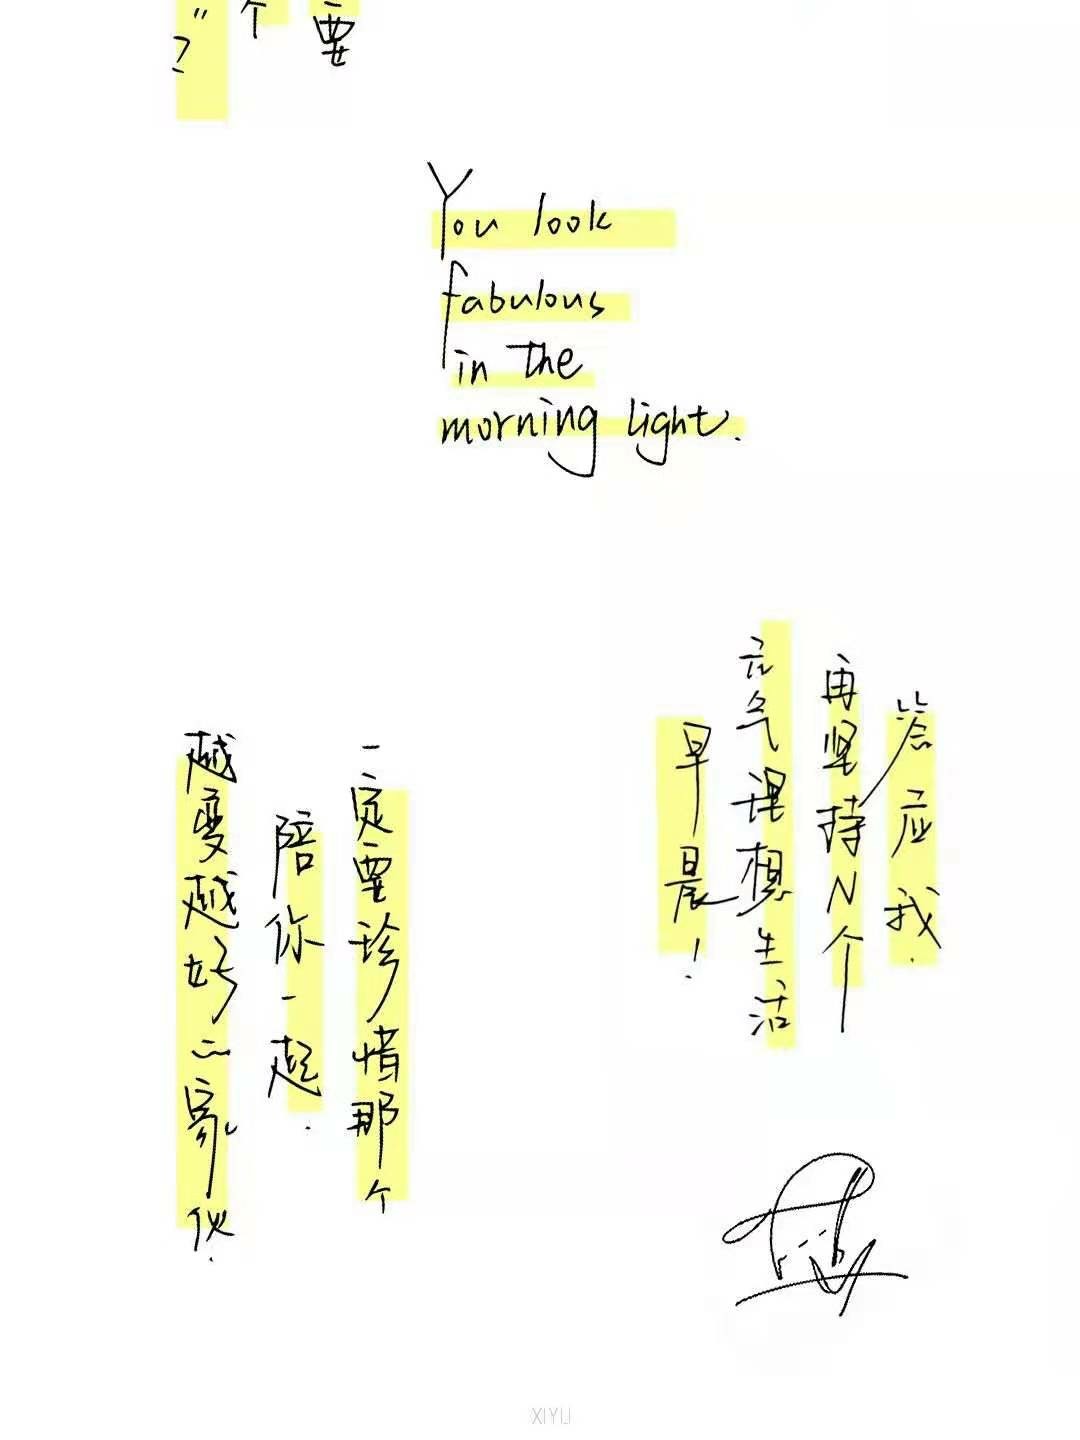 要
个
You look
fabulous
in the
morning light.
答应我.
再坚持N个
元气理想生活
早晨!
一定要珍惜那个
陪你一起.
越变越好的家伙.
XIYU